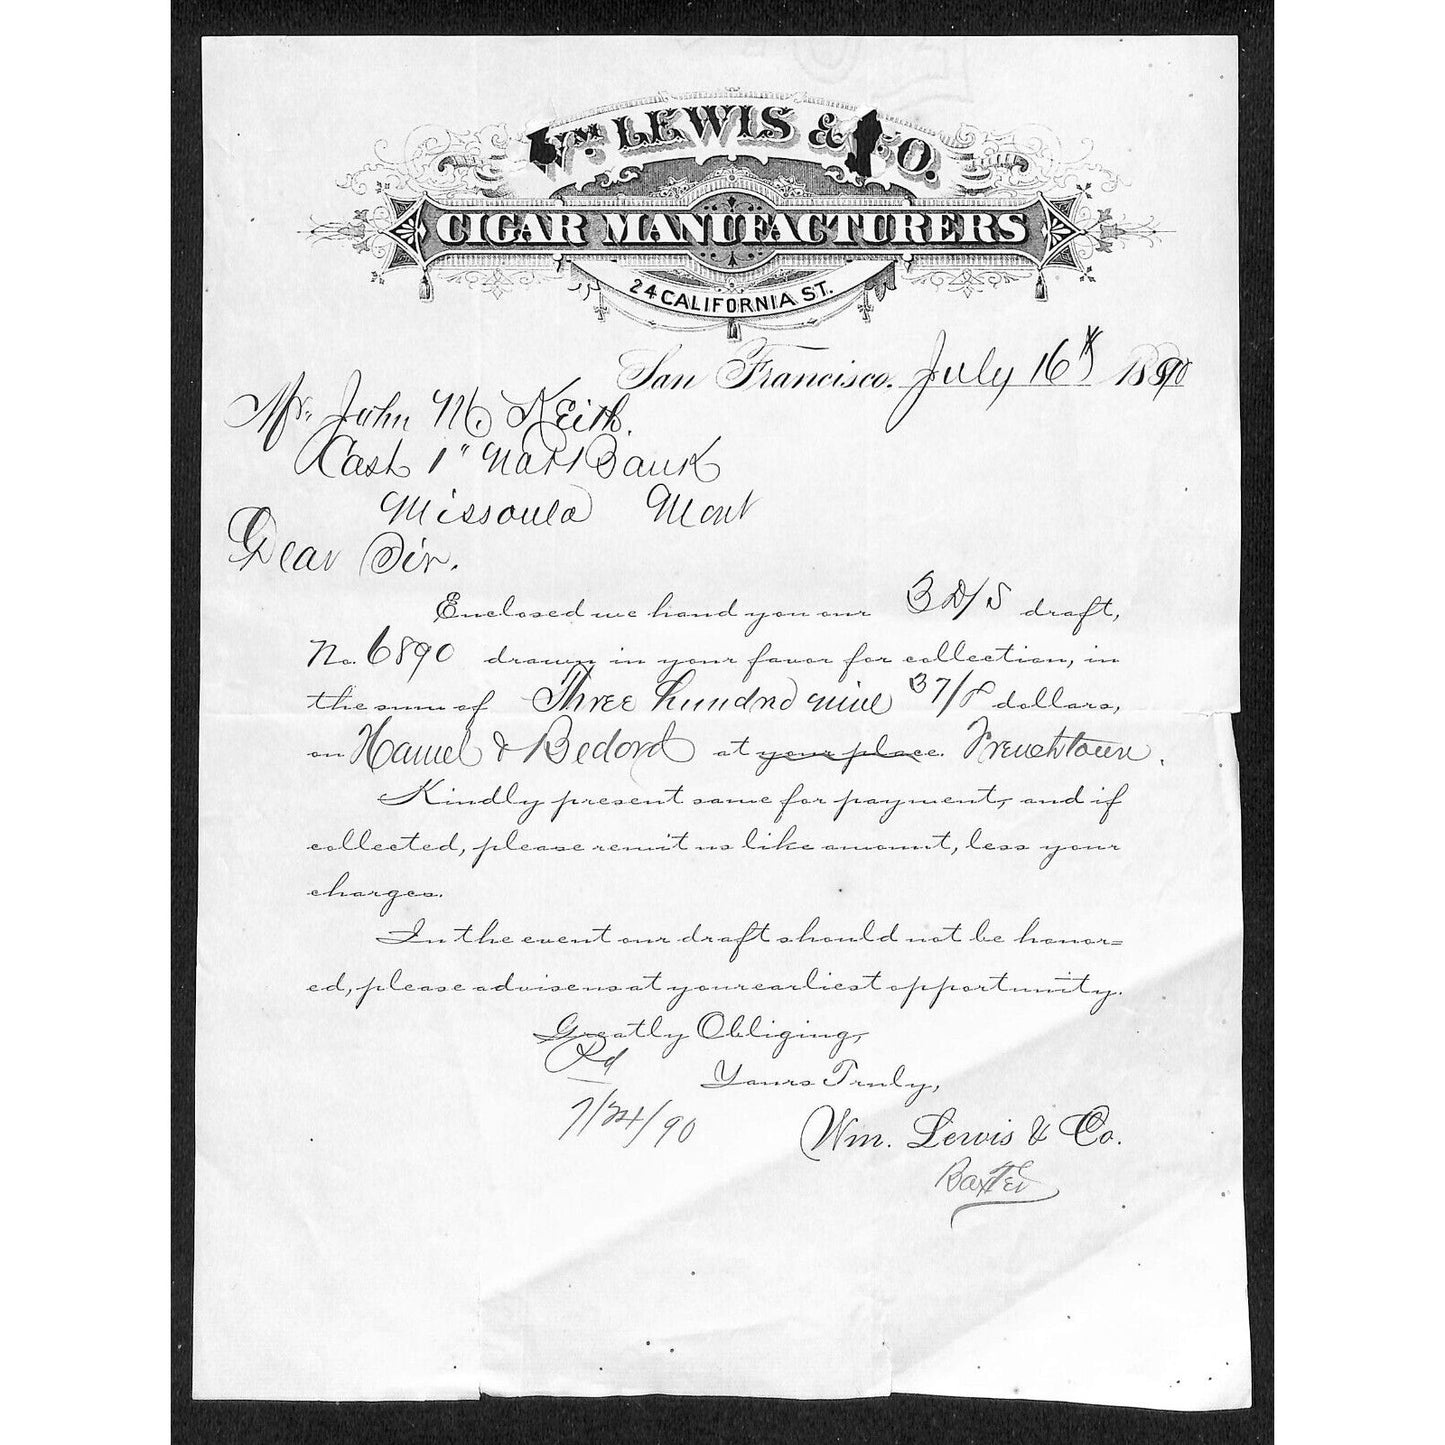 Wm. LEWIS & CO.
CIGAR MANUFACTURERS
24 CALIFORNIA ST.
San Francisco. July 16th 1890
Mr. John M. Keith.
Cash 1" Natl Bank
Missoula Mont
Dear Sir.
Enclosed we hand you our 3 D/S draft,
No. 6890 drawn in your favor for collection, in
the sum of Three hundred nine dollars,
on Hamel & Bedord at your place. Frenchtown.
Kindly present same for payment, and if
collected, please remit us like amount, less your
charges.
In the event our draft should not be honor=
ed, please advise us at your earliest opportunity.
Greatly Obliging,
Pd
Yours Truly,
7/24/90
Wm. Lewis & Co.
Baxter